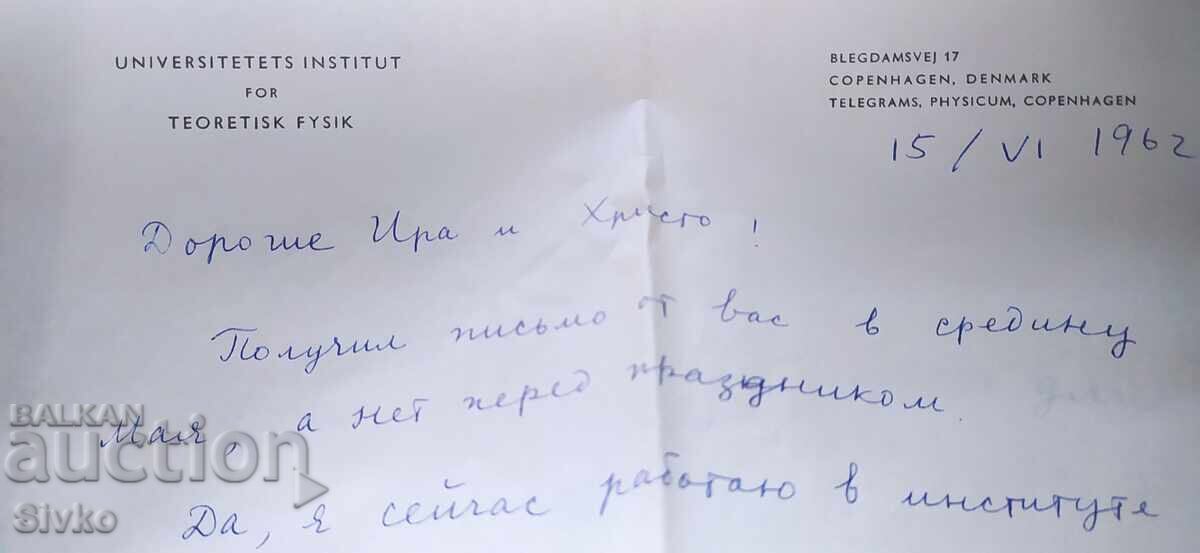 UNIVERSITETETS INSTITUT
FOR
TEORETISK FYSIK
BLEGDAMSVEJ 17
COPENHAGEN, DENMARK
TELEGRAMS, PHYSICUM, COPENHAGEN
15 / VI 1962
Дорогие Ира и Христо!
Получил письмо от вас в средину
Мая, а нет перед праздником.
Да, я сейчас работаю в институте
BALKAN
auction
Sivko